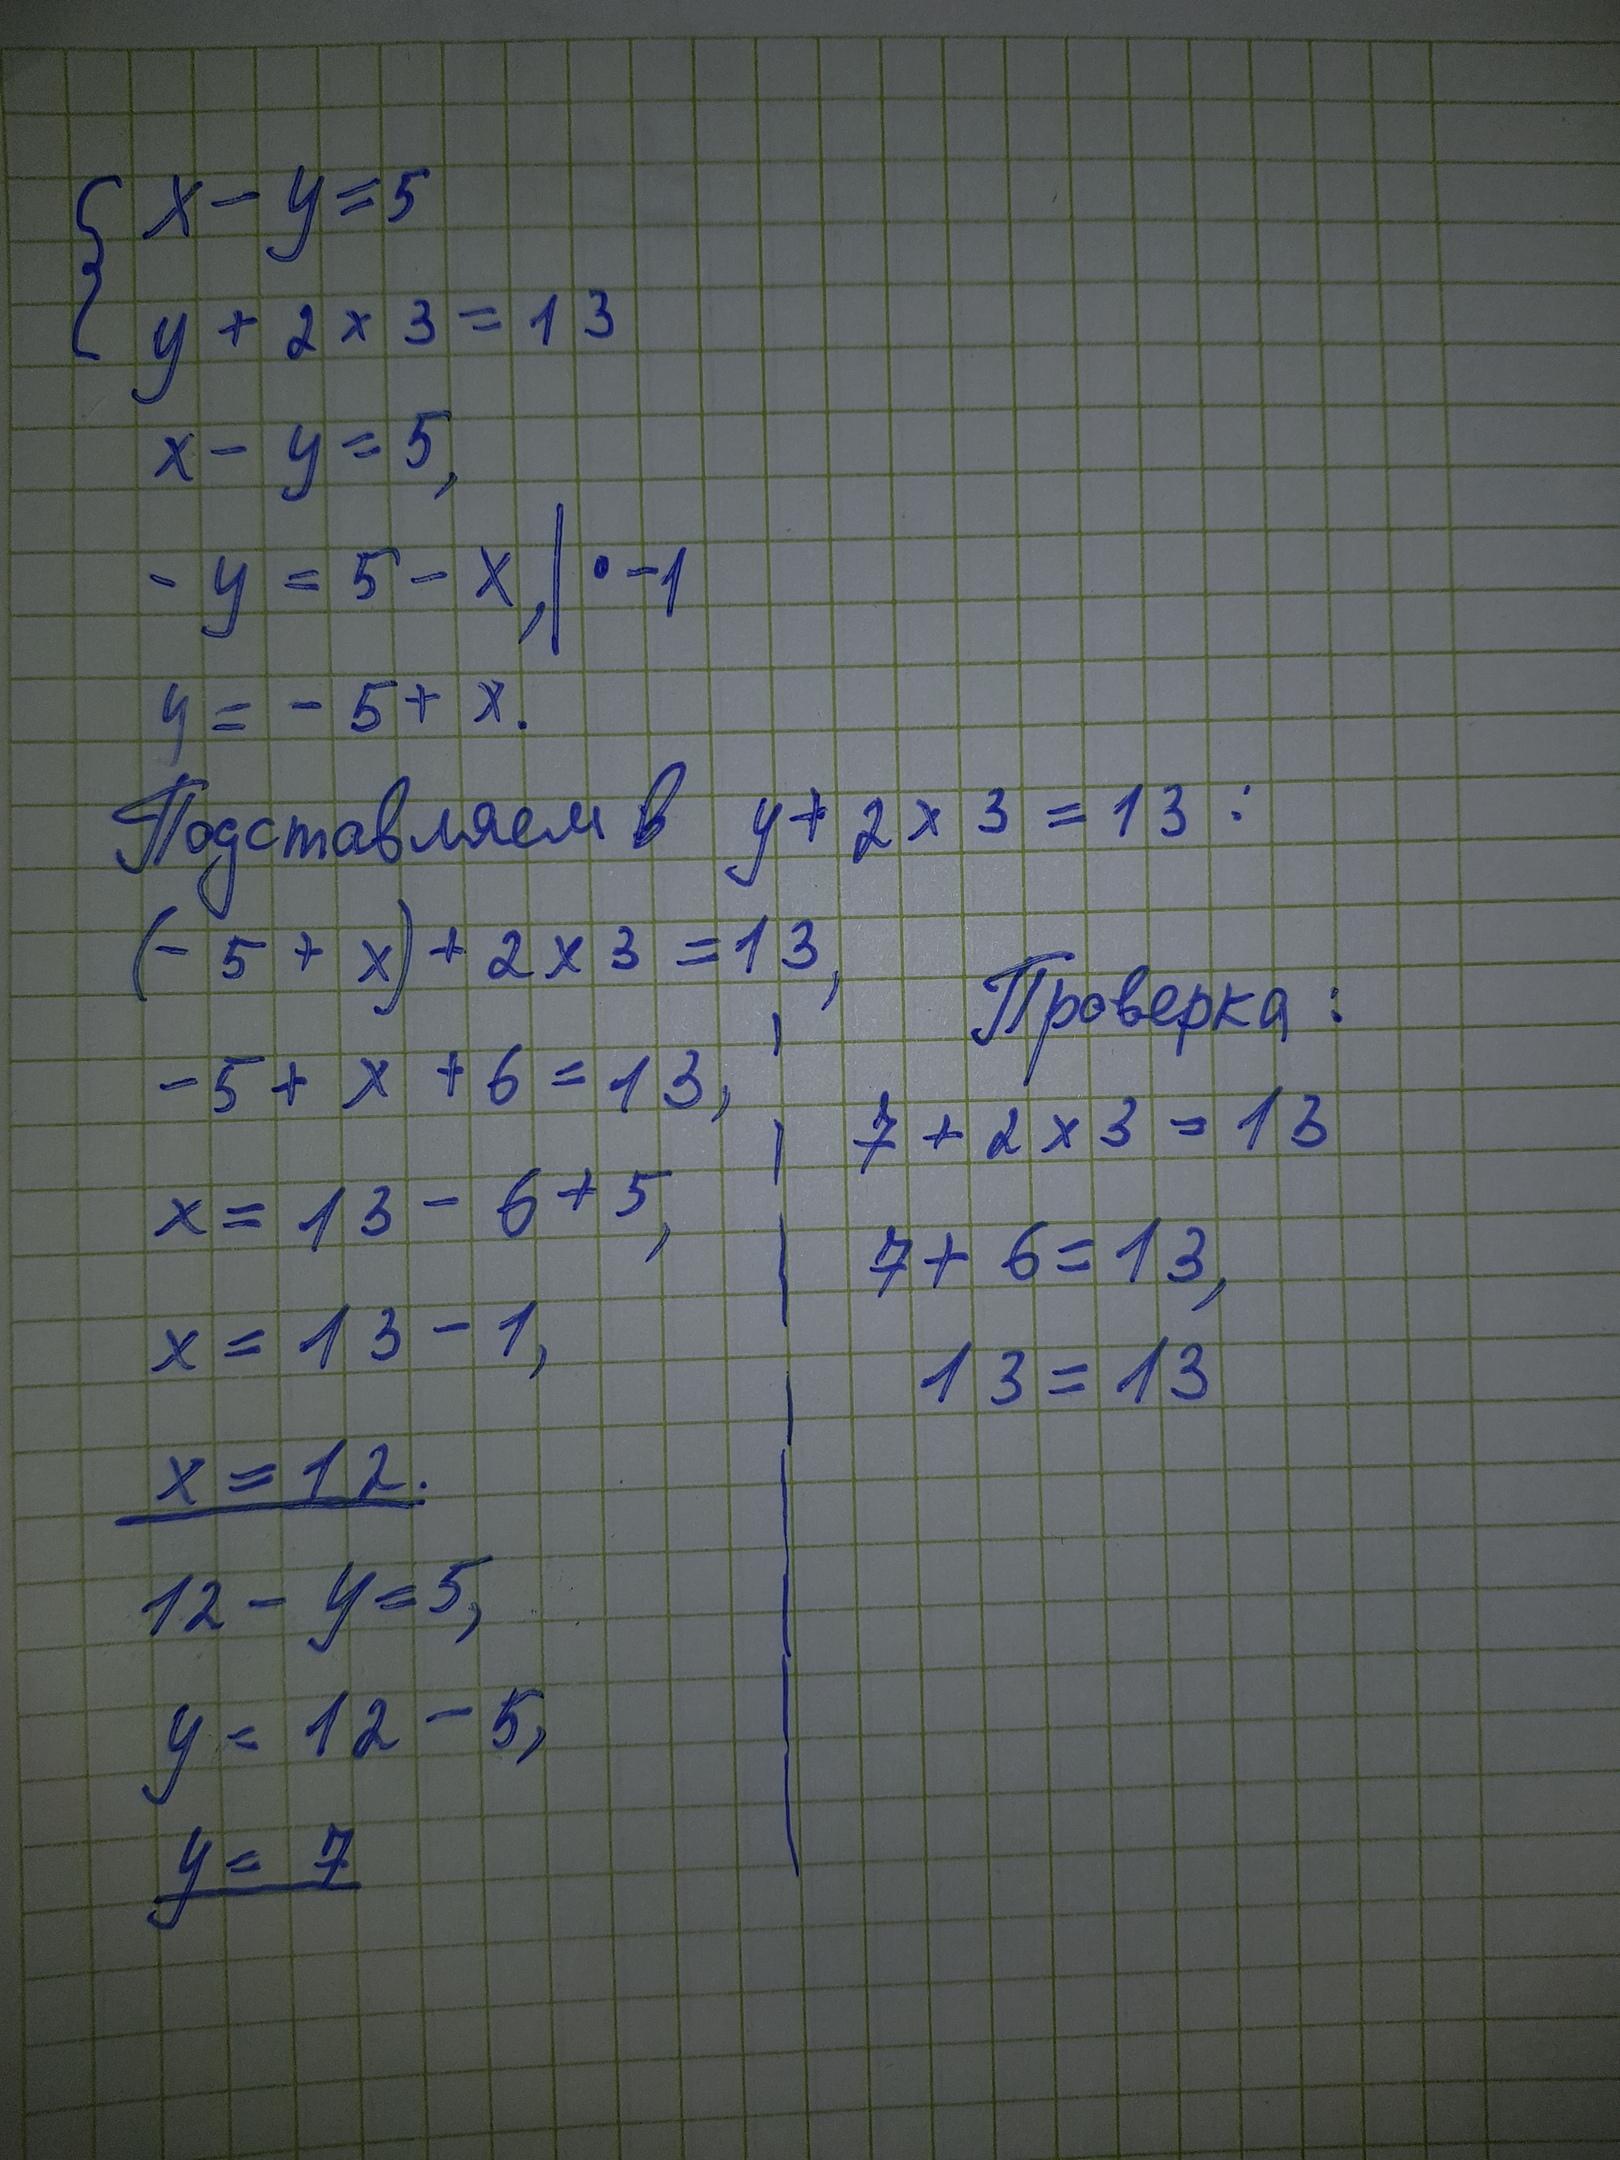 { x - y = 5
y + 2 x 3 = 13
x - y = 5,
- y = 5 - x, | • -1
y = - 5 + x.
Подставляем в y + 2 x 3 = 13 :
(- 5 + x) + 2 x 3 = 13,
-5 + x + 6 = 13,
x = 13 - 6 + 5,
x = 13 - 1,
x = 12.
12 - y = 5,
y = 12 - 5,
y = 7
Проверка :
7 + 2 x 3 = 13
7 + 6 = 13,
13 = 13